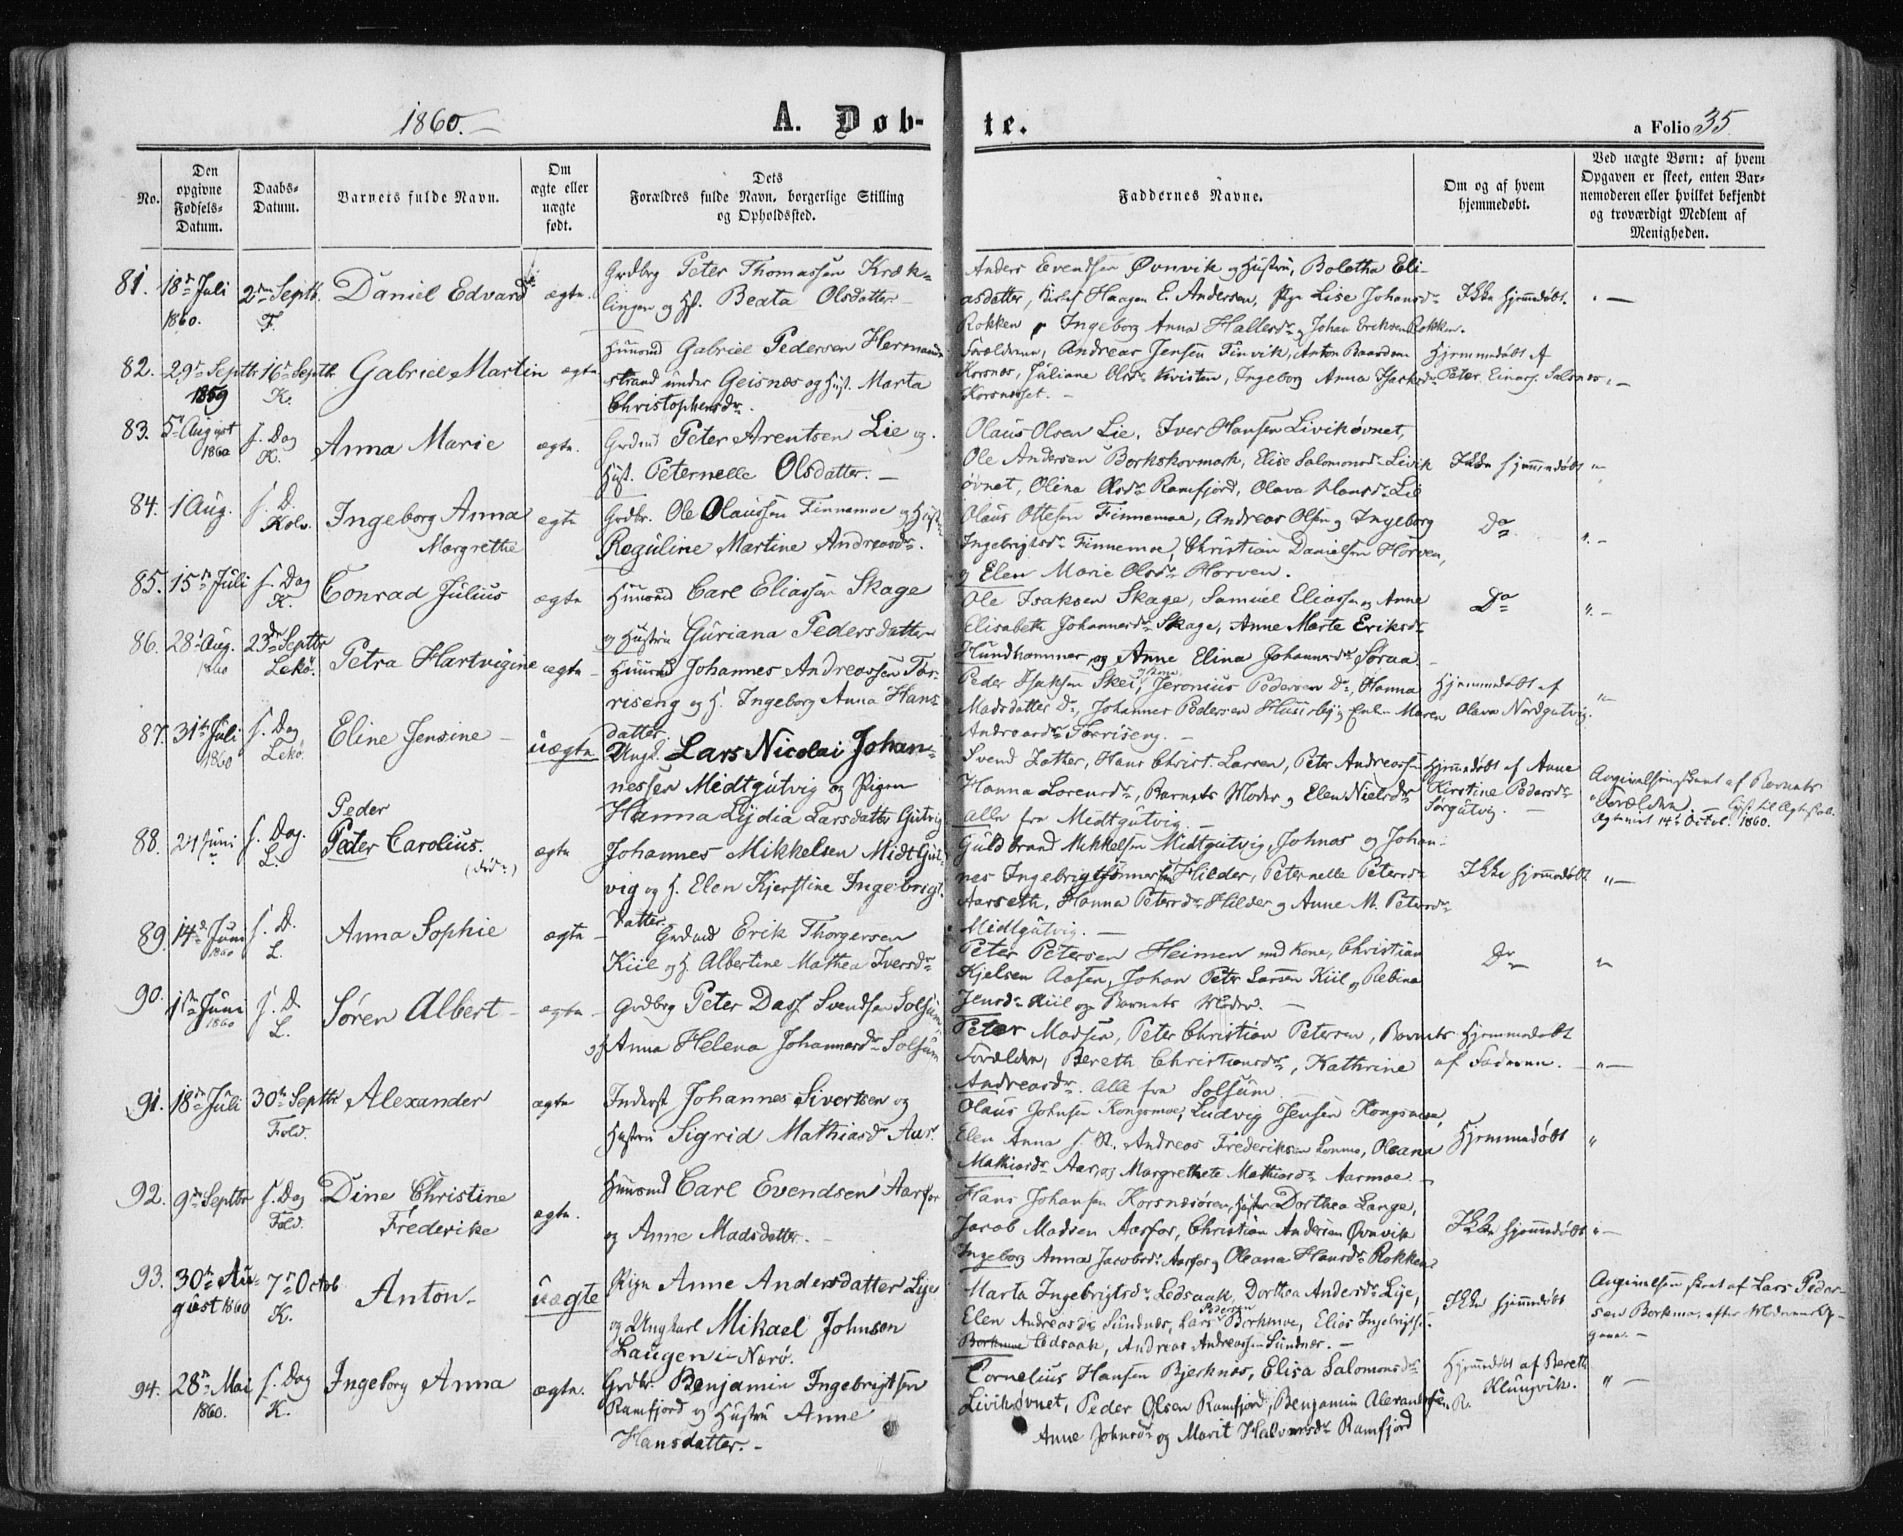 1860.
A. Døb-
te.
a Folio 35
No.
Den opgivne Fødsels-Datum.
Daabs-Datum.
Barnets fulde Navn.
Om ægte eller uægte født.
Dets Forældres fulde Navn, borgerlige Stilling og Opholdssted.
Faddernes Navne.
Om og af hvem hjemmedøbt.
Ved uægte Børn: af hvem Opgaven er skeet, enten Barnemoderen eller hvilket bekjendt og troværdigt Medlem af Menigheden.
81. 18de Juli 1860. 2den Septbr. F. Daniel Edvard ægte.
Grdbrg Peter Thomassen Kræk-
lingen og H. Beata Olsdatter
Anders Evendsen Øvnvik og Hustru, Bolettha Eli-
asdatter, Haagen E. Andersen, Pige Lise Johansdr
Rokken, Ingeborg Anna Hallesdr og Johan Eriksen Rokken.
Ikke hjemmedøbt.
82. 29de Septbr 1859 16de Septbr K. Gabriel Martin ægte
Huusmd Gabriel Pedersen Hermand-
strand under Geisnæs og Hust. Marta
Christophersdr.
Forældrene, Andreas Jensen Finvik, Anton Baardsen
Korsnæs, Juliane Olsdr Kvisten, Ingeborg Anna Isaksdr
Korsnæset.
Hjemmedøbt af
Peter Einars. Salsnes
83. 5 August 1860 s. Dag K. Anna Marie ægte.
Grdmd Peter Arentsen Lie og
Hust. Peternelle Olsdatter.
Olaus Olsen Lie, Iver Hansen Livikøvnet,
Ole Andersen Borkskovmark, Elise Salomonsdr Livik
øvnet, Olina Olsdr Ramfjord, Olava Hansdr Lie
Ikke hjemmedøbt
84. 1 Aug. s. D. Kolv. Ingeborg Anna
Margrethe
ægte
Grdbr. Ole Olaussen Finnemoe og Hust.
Reguline Martine Andreasdr.
Olaus Ottesen Finnemoe, Andreas Olsen og Ingeborg
Ingebrigtsdr Finnemoe, Christian Danielsen Horven,
og Elen Marie Olsdr Horven.
Do
85. 15de Juli s. Dag K. Conrad Julius ægte
Huusmd Carl Eliassen Skage
og Hustru Guriana Pedersdatter
Ole Isaksen Skage, Samuel Eliassen og Anne
Elisabeth Johannesdr Skage, Anne Marte Eriksdr
Hundhammer og Anne Elina Johannesdr Søraa.
Do
86. 28 Aug. 1860 23de Septbr Lekø. Petra Hartvigine ægte
Huusmd Johannes Andreassen Tor-
riseng og H. Ingeborg Anna Hans-
datter.
Peder Isaksen Skei, Jeronius Pedersen Do, Hanna
Madsdatter Do, Johannes Pedersen Husirby, Maren
Andreasdr Torriseng.
Hjemmedøbt af
Olava Nordgutvig.
87. 31te Juli 1860 s. Dag Lekø. Eline Jensine uægte
Ungk. Lars Nicolai Johan-
nessen Midtgutvig og Pigen
Hanna Lydia Larsdatter Gutvig
Svend Zather, Hans Christ. Larsen, Peter Andreassen
Hanna Lorensdr, Barnets Moder og Elen Nielsdr
alle fra Midtgutvig.
Hjemmedøbt af Anne
Kirstine Pedersdr
Sørgutvig.
Angivelsen skeet af Barnets
Forældre.
Ægteviet 14de Octbr. 1860.
88. 24 Juni s. Dag. L. Peder
Peder Carolius.
ægte
Johannes Mikkelsen Midtgut-
vig og H. Elen Kjerstine Ingebrigt-
datter
Guldbrand Mikkelsen Midtgutvig, Johnas og Johan-
nes Ingebrigtsønner fra Hilder, Peternelle Petersdr
Aarseth, Hanna Petersdr Hilder og Anne M. Petersdr
Midtgutvig.
Ikke hjemmedøbt
89. 14de Juni 1860 s. D. L. Anna Sophie ægte
Grdmd Erik Thorgersen
Kiil og H. Albertine Mathea Iversdr
Peter Petersen Heimen med Kone, Christian
Kjelsen Aasen, Johan Peter Larsen Kiil og Rebina
Jensdr Kiil og Barnets Moder.
Do
90. 1ste Juni 1860 s. D. L. Søren Albert ægte
Grdbrg Peter Dass Svendsen Solsum
og H. Anna Helena Johannesdr Solsum
Peter Madsen, Peter Christian Petersen, Barnets
Forældre, Bereth Christiansdr, Kathrine
Andreasdr. alle fra Solsum
Hjemmedøbt
af Faderen.
91. 18de Juli 30te Septbr Fold. Alexander ægte
Inderst Johannes Sivertsen og
Hustru Sigrid Mathiasdr Aar.
Olaus Johnsen Kongsmoe, Ludvig Jensen Kongsmoe,
Elen Anna s. St. Andreas Frederiksen Lonmo, Oleana
Mathiasdr Aar, og Margrethete Mathiasdr Aarmoe.
Hjemmedøbt
92. 9de Septbr s. Dag Fold. Dine Christine
Frederike
ægte.
Huusmd Carl Evendsen Aarfor
og Anne Madsdatter.
Hans Johansen Korsnæsøren, Hustru Dorthea Lange,
Jacob Madsen Aarfor, Christian Andersen Øvnvik
Ingeborg Anna Jacobsdr Aarfor og Oleana Hansdr Rokken.
Ikke hjemmedøbt
93. 30te Au-
gust 1860 7de Octob. K. Anton uægte
Pige Anne Andersdatter Lye
og Ungkarl Mikael Johnsen
Laugen i Nærø.
Marta Ingebrigtsdr Ledsaak, Dorthea Andersdr Lye,
Elen Andreasdr Sundnæs, Lars Pedersen Borkmoe, Elias Ingebrigts.
Borkmoe Ledsaak, Andreas Andreassen Sundnæs.
Ikke hjemmedøbt
Angivelsen skeet af Lars Peder-
sen Borkmo, efter Moderens Op-
gave.
94. 28de Mai 1860. s. Dag K. Ingeborg Anna ægte.
Grdbr. Benjamin Ingebrigtsen
Ramfjord og Hustru Anne
Hansdatter.
Cornelius Hansen Bjerknes, Elisa Salomonsdr
Livikøvnet, Peder Olsen Ramfjord, Benjamin Alexandersen R.
Anne Johnsdr og Marit Halvorsdr Ramfjord
Hjemmedøbt af Bereth
Klungvik.